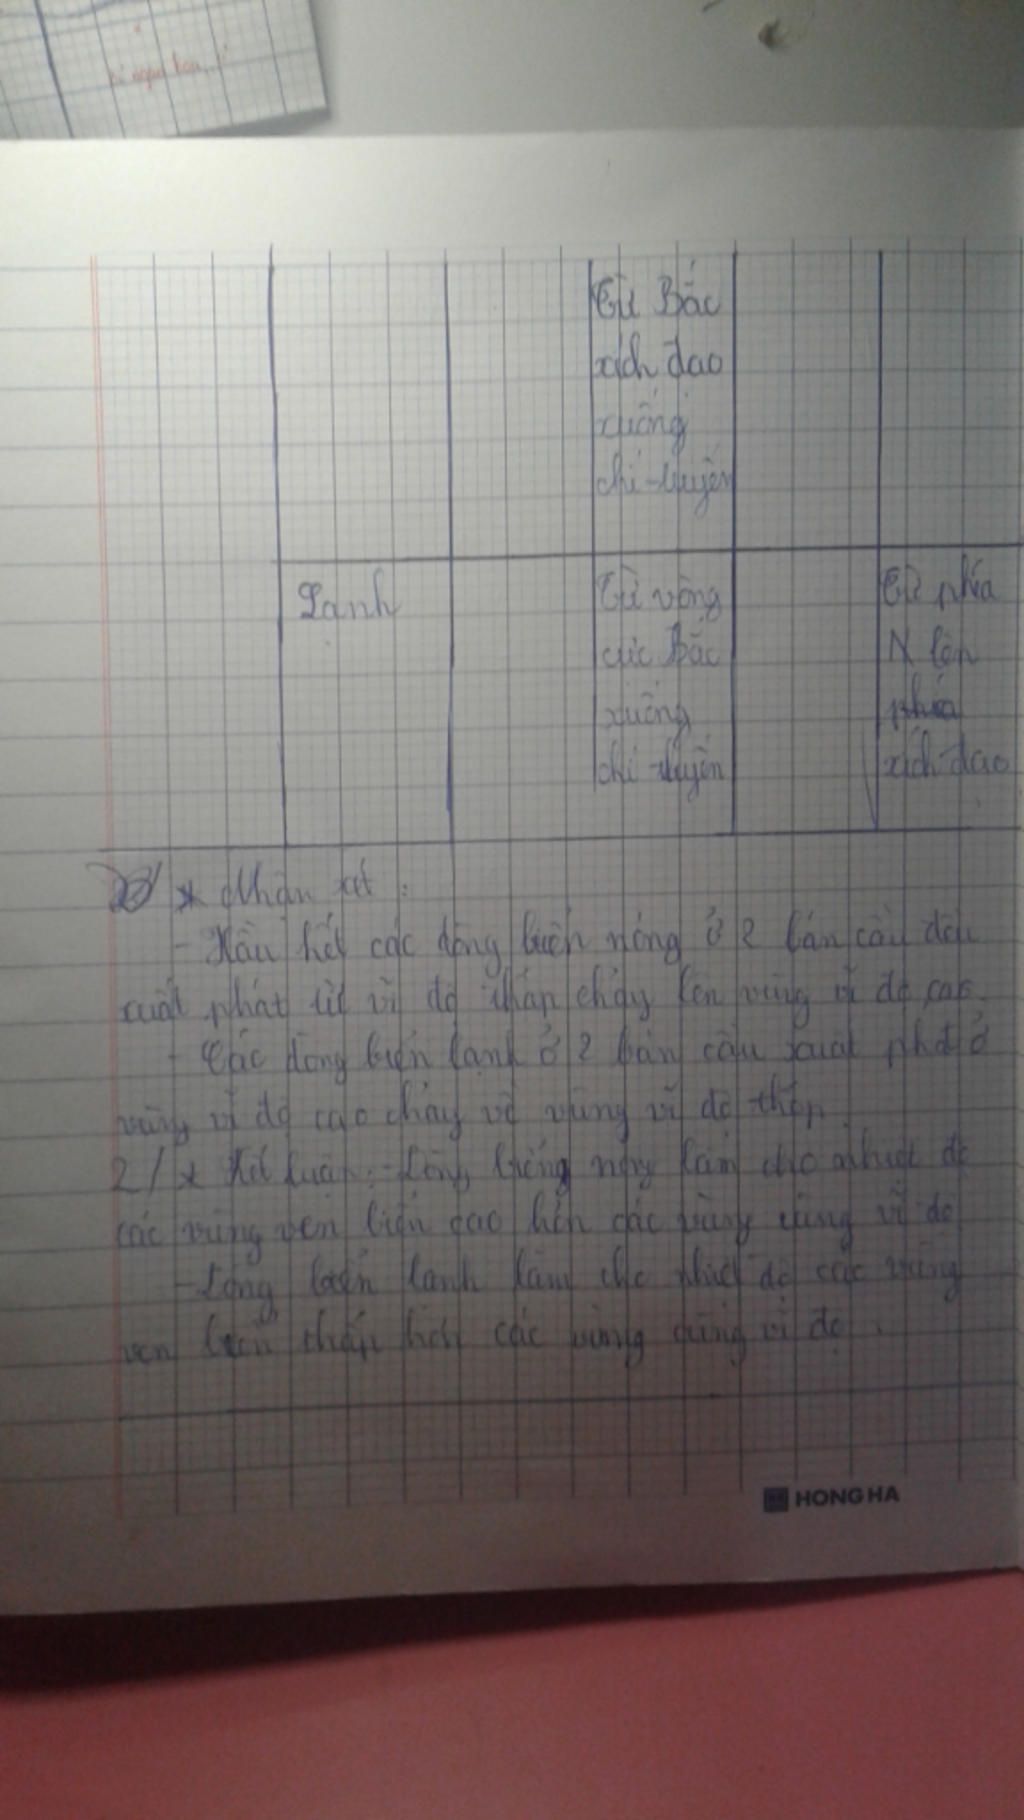 Từ Bắc
xích đạo
xuống
chí tuyến
Lạnh
Từ vòng
cực Bắc
xuống
chí tuyến
Từ phía
N lên
phía
xích đạo
* Nhận xét :
- Hầu hết các dòng biển nóng ở 2 bán cầu đều
xuất phát từ vĩ độ thấp chảy lên vùng vĩ độ cao.
- Các dòng biển lạnh ở 2 bán cầu xuất phát ở
vùng vĩ độ cao chảy về vùng vĩ độ thấp.
2/ * Kết luận: - Dòng biển nóng làm cho nhiệt độ
các vùng ven biển cao hơn các vùng cùng vĩ độ
- Dòng biển lạnh làm cho nhiệt độ các vùng
ven biển thấp hơn các vùng cùng vĩ độ.
HONG HA